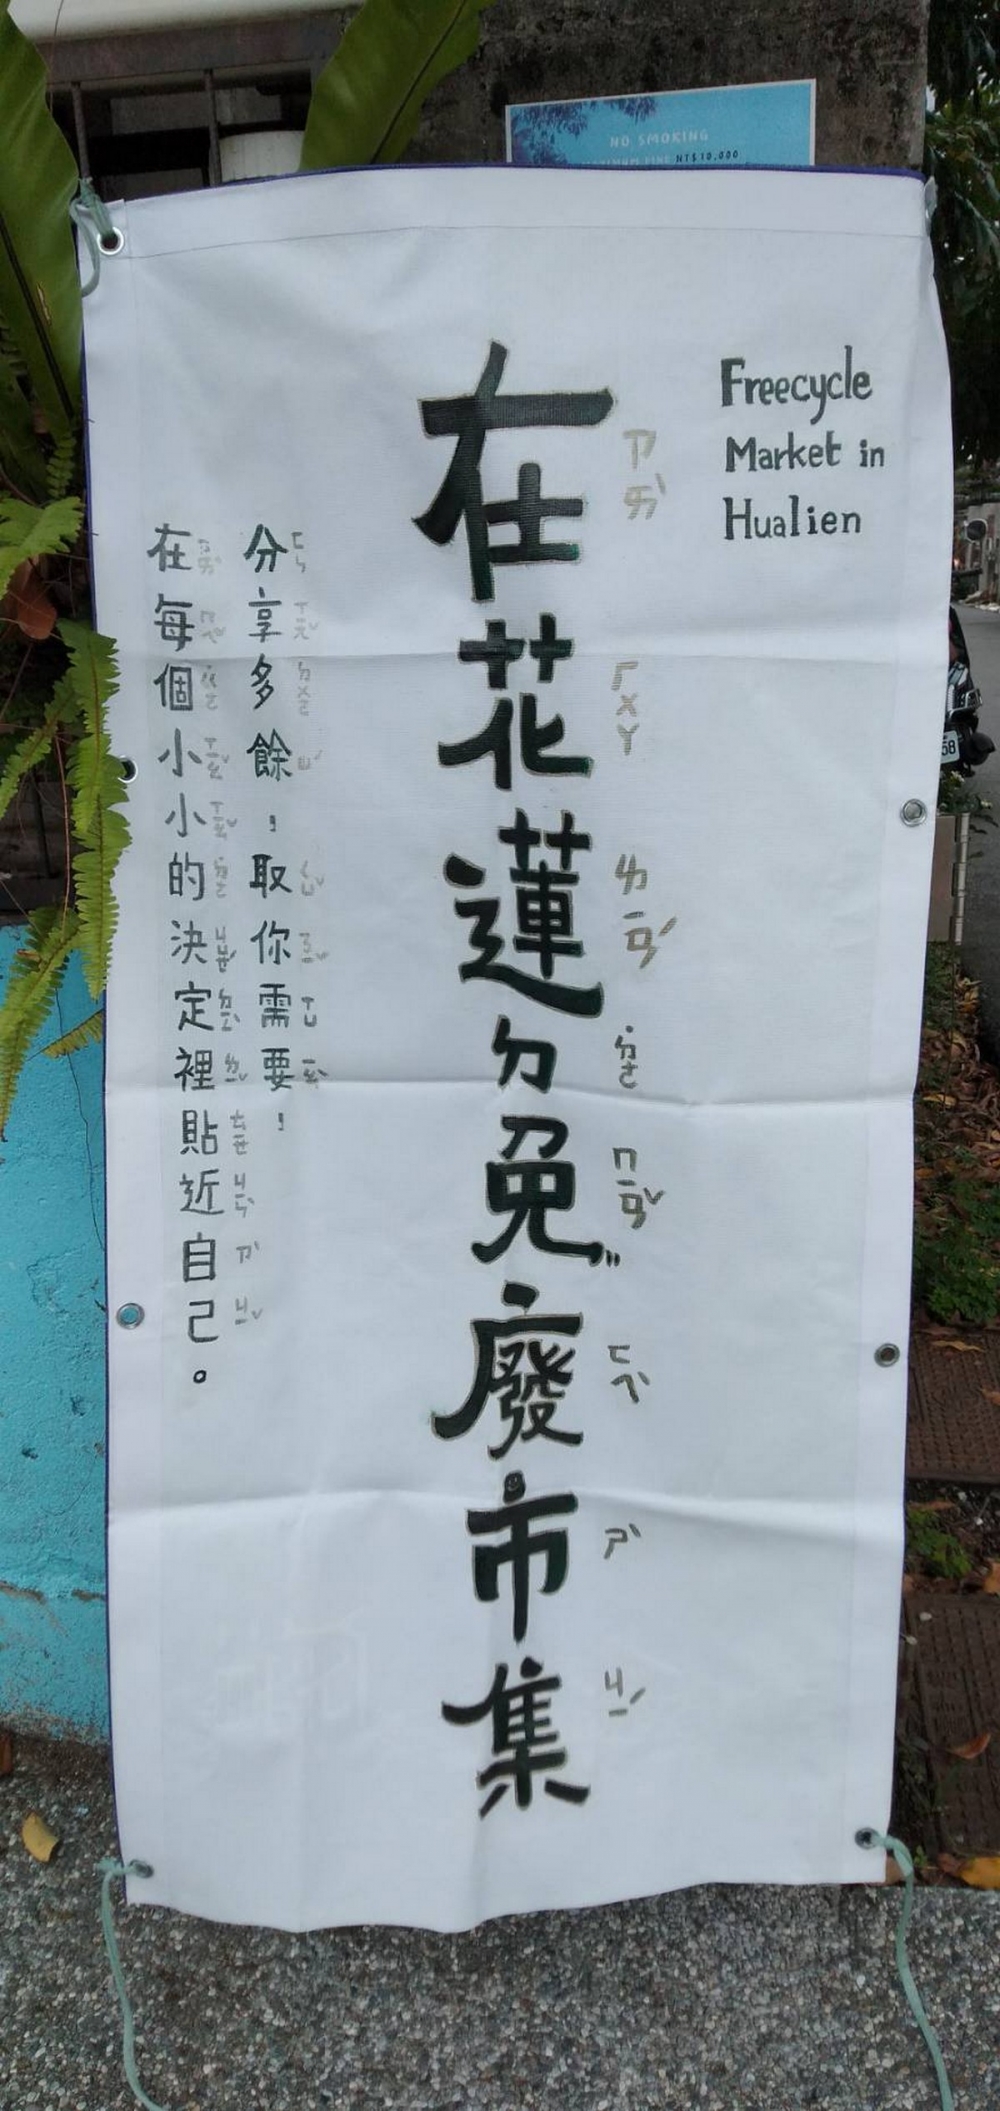 NO SMOKING
NT$10,000
Freecycle
Market in
Hualien
在花蓮ㄉ免廢市集
ㄗㄞˋ ㄏㄨㄚ ㄌㄧㄢˊ ˙ㄉㄜ ㄇㄧㄢˇ ㄈㄟˋ ㄕˋ ㄐㄧˊ
分享多餘，取你需要，
在每個小小的決定裡貼近自己。